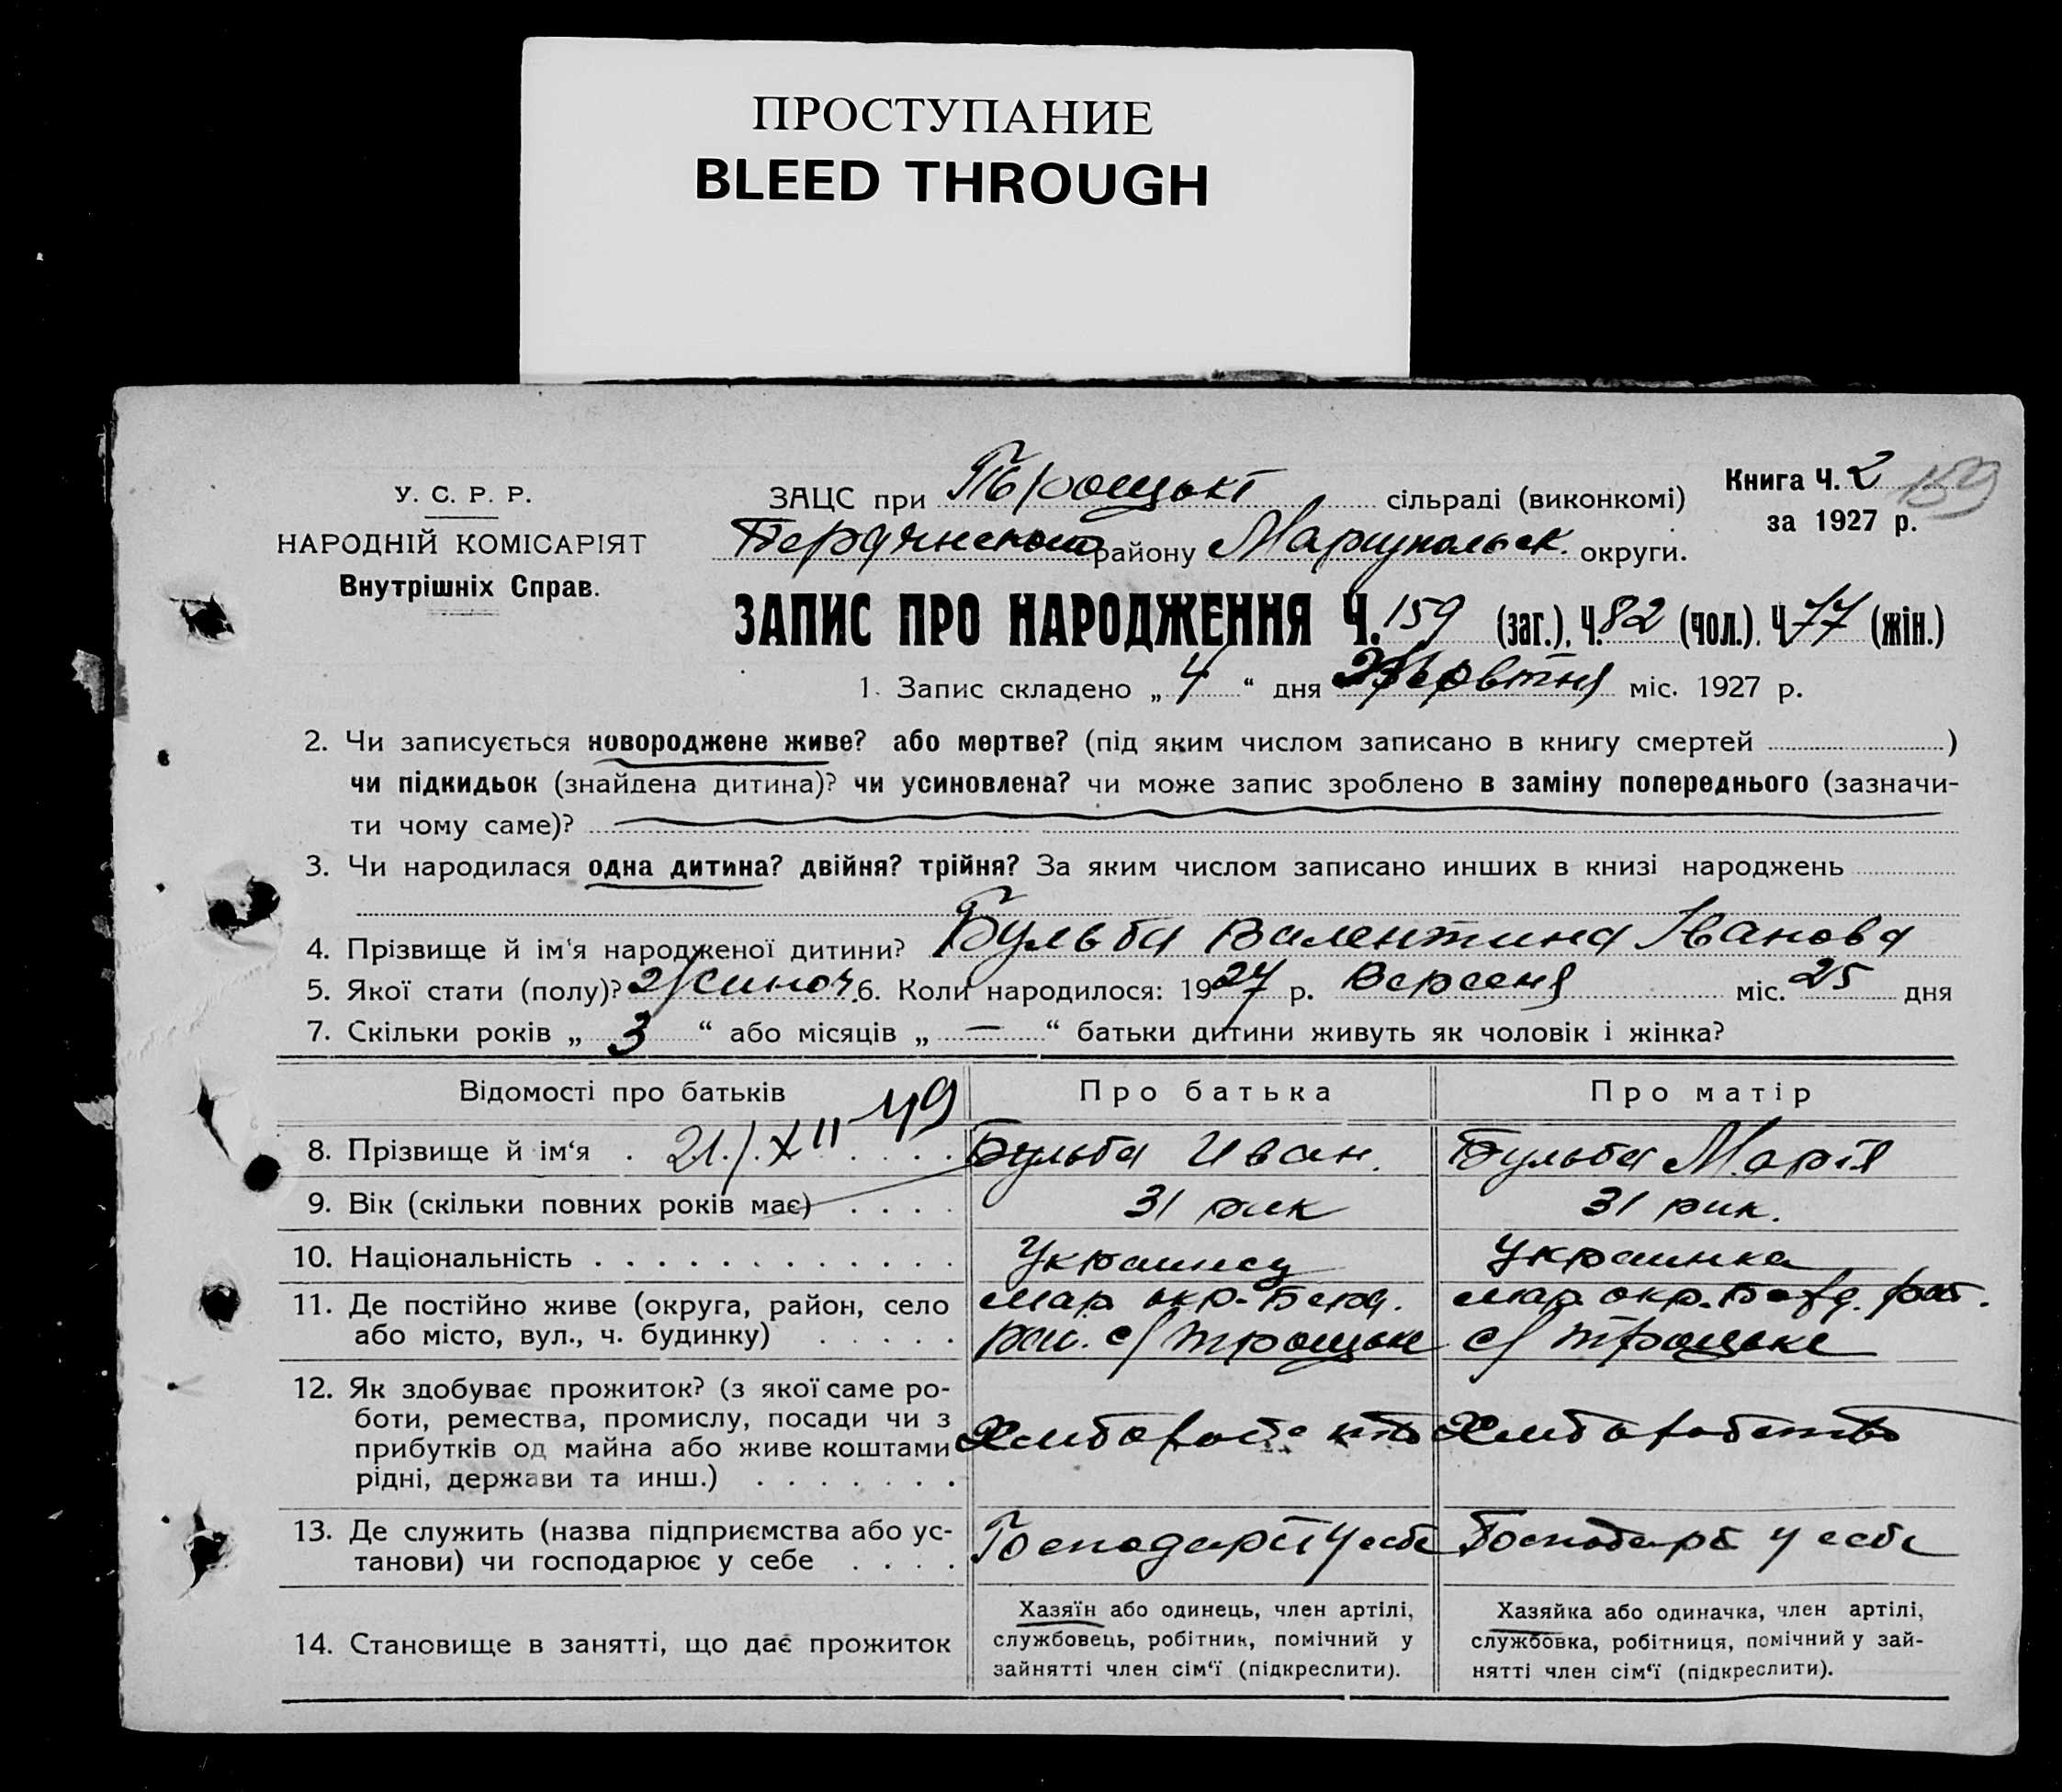 ПРОСТУПАНИЕ
BLEED THROUGH
У. С. Р. Р.
НАРОДНІЙ КОМІСАРІЯТ
Внутрішніх Справ.
ЗАЦС при Троцькі сільраді (виконкомі)
Бердянського району Маріупольськ. округи.
Книга Ч. 2 159
за 1927 р.
ЗАПИС ПРО НАРОДЖЕННЯ Ч. 159 (заг.). Ч. 82 (чол.). Ч 77 (жін.)
1. Запис складено „ 4 “ дня Жовтня міс. 1927 р.
2. Чи записується новороджене живе? або мертве? (під яким числом записано в книгу смертей )
чи підкидьок (знайдена дитина)? чи усиновлена? чи може запис зроблено в заміну попереднього (зазначи-
ти чому саме)?
3. Чи народилася одна дитина? двійня? трійня? За яким числом записано инших в книзі народжень
4. Прізвище й ім'я народженої дитини? Бульба Валентина Іванова
5. Якої стати (полу)? жиноч. 6. Коли народилося: 1927 р. Вересня міс. 25 дня
7. Скільки років „ 3 “ або місяців „ — “ батьки дитини живуть як чоловік і жінка?
Відомості про батьків Про батька Про матір
8. Прізвище й ім‘я . 21/XII 49 Бульба Иван. Бульба Марія
9. Вік (скільки повних років має) . . . . 31 рик 31 рик.
10. Національність . . . . . . . . . . . . . Украинец Украинка
11. Де постійно живе (округа, район, село мар окр. Берд. мар. окр. Берд. рай.
або місто, вул., ч. будинку) . . . . . рай. с/ Троцьке с/ Троцьке
12. Як здобуває прожиток? (з якої саме ро-
боти, ремества, промислу, посади чи з
прибутків од майна або живе коштами Хлиборобство Хлиборобство
рідні, держави та инш.) . . . . . . .
13. Де служить (назва підприємства або ус- Господарь у себе Господарь у себе
танови) чи господарює у себе . . . .
14. Становище в занятті, що дає прожиток
Хазяїн або одинець, член артілі,
службовець, робітник, помічний у
зайнятті член сім‘ї (підкреслити).
Хазяйка або одиначка, член артілі,
службовка, робітниця, помічний у зай-
нятті член сім‘ї (підкреслити).